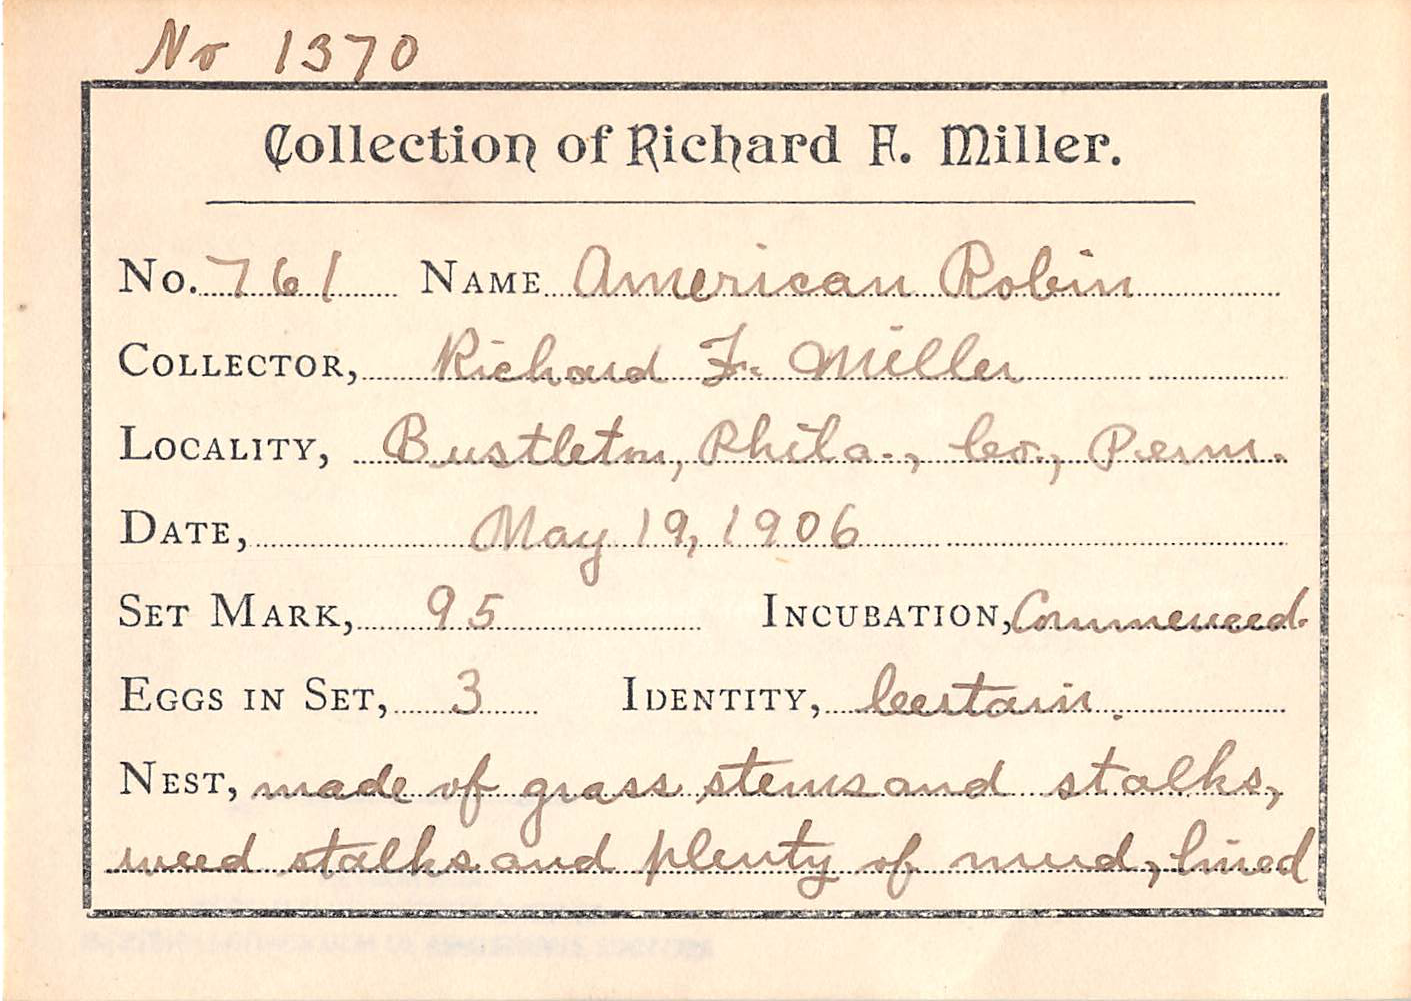 No 1370
Collection of Richard F. Miller.
No. 761 Name American Robin
Collector, Richard F. Miller
Locality, Bustleton, Phila., Co., Penn.
Date, May 19, 1906
Set Mark, 95 Incubation, Commenced.
Eggs in Set, 3 Identity, Certain.
Nest, made of grass stems and stalks,
weed stalks and plenty of mud, lined